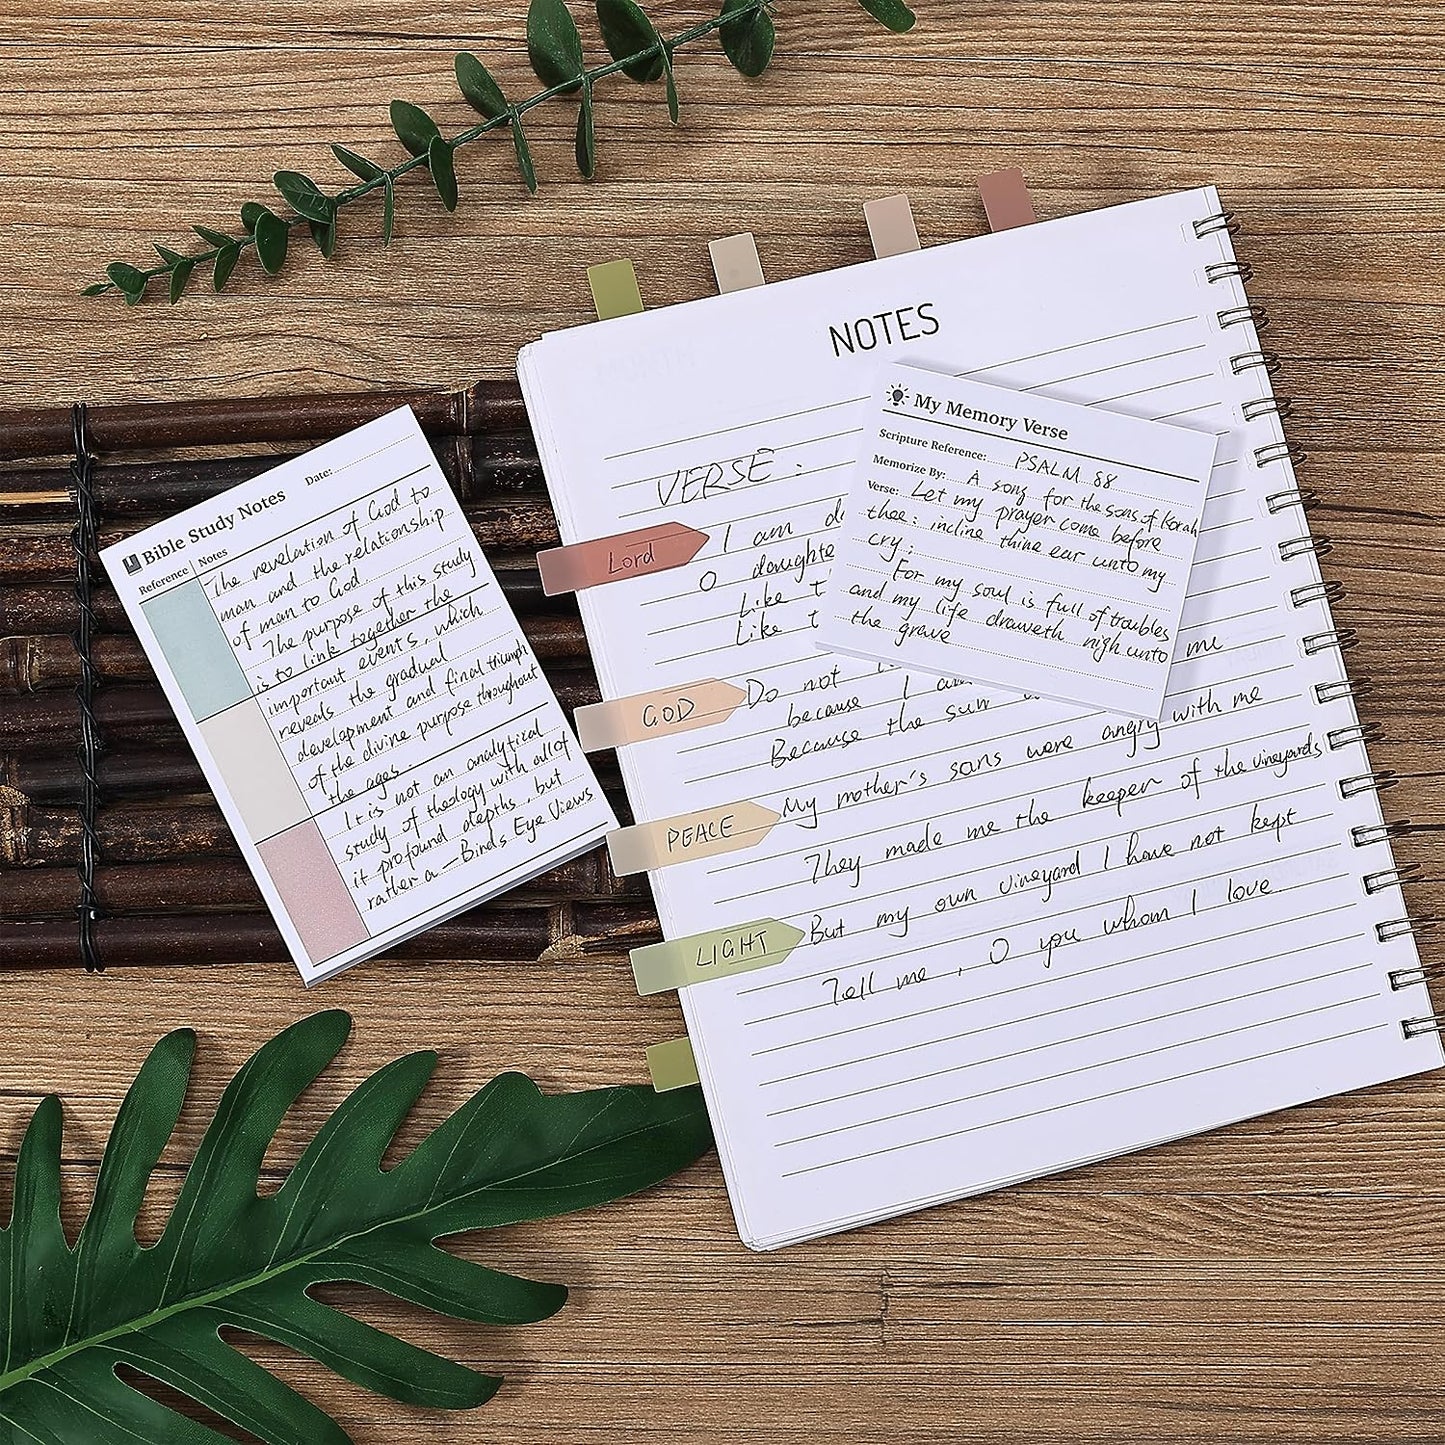 Bible Study Notes
Date:
Reference | Notes
The revelation of God to
man and the relationship
of man to God.
The purpose of this study
is to link together the
important events, which
reveals the gradual
development and final triumph
of the divine purpose throughout
the ages.
It is not an analytical
study of theology with all of
it profound depths, but
rather a — Binds Eye Views
NOTES
VERSE.
Lord
I am
O daughte
Like t
Like t
me
GOD
Do not
because I am
Because the sun
PEACE
My mother's sons were angry with me
They made me the keeper of the vineyards
But my own vineyard I have not kept
LIGHT
Tell me, O you whom I love.
My Memory Verse
Scripture Reference: PSALM 88
Memorize By: A song for the sons of Korah
Verse: Let my prayer come before
thee: incline thine ear unto my
cry:
For my soul is full of troubles
and my life draweth nigh unto
the grave